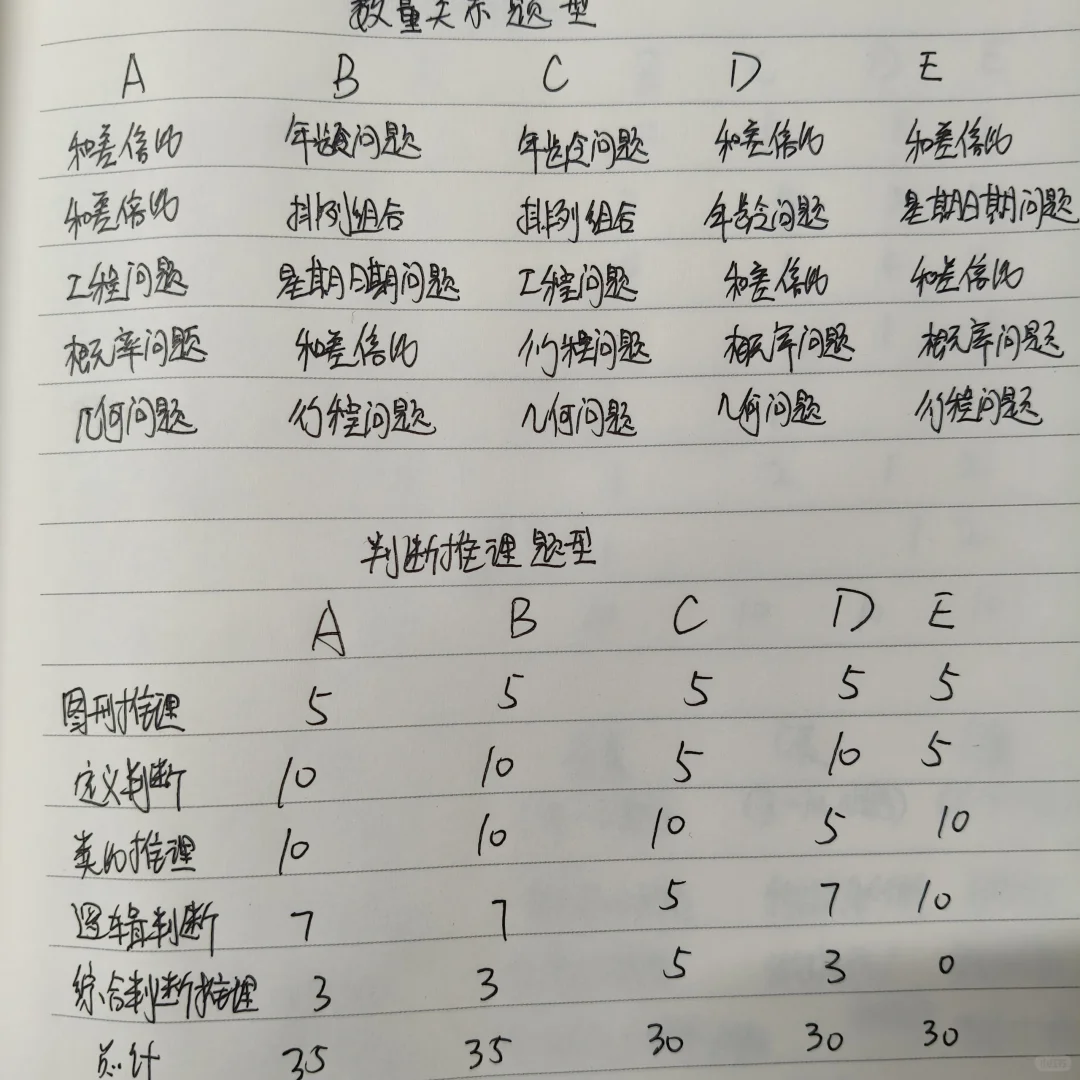 数量关系题型
A B C D E
和差倍比 年龄问题 年龄问题 和差倍比 和差倍比
和差倍比 排列组合 排列组合 年龄问题 星期日期问题
工程问题 星期日期问题 工程问题 和差倍比 和差倍比
概率问题 和差倍比 行程问题 概率问题 概率问题
几何问题 行程问题 几何问题 几何问题 行程问题
判断推理题型
A B C D E
图形推理 5 5 5 5 5
定义判断 10 10 5 10 5
类比推理 10 10 10 5 10
逻辑判断 7 7 5 7 10
综合判断推理 3 3 5 3 0
总计 35 35 30 30 30